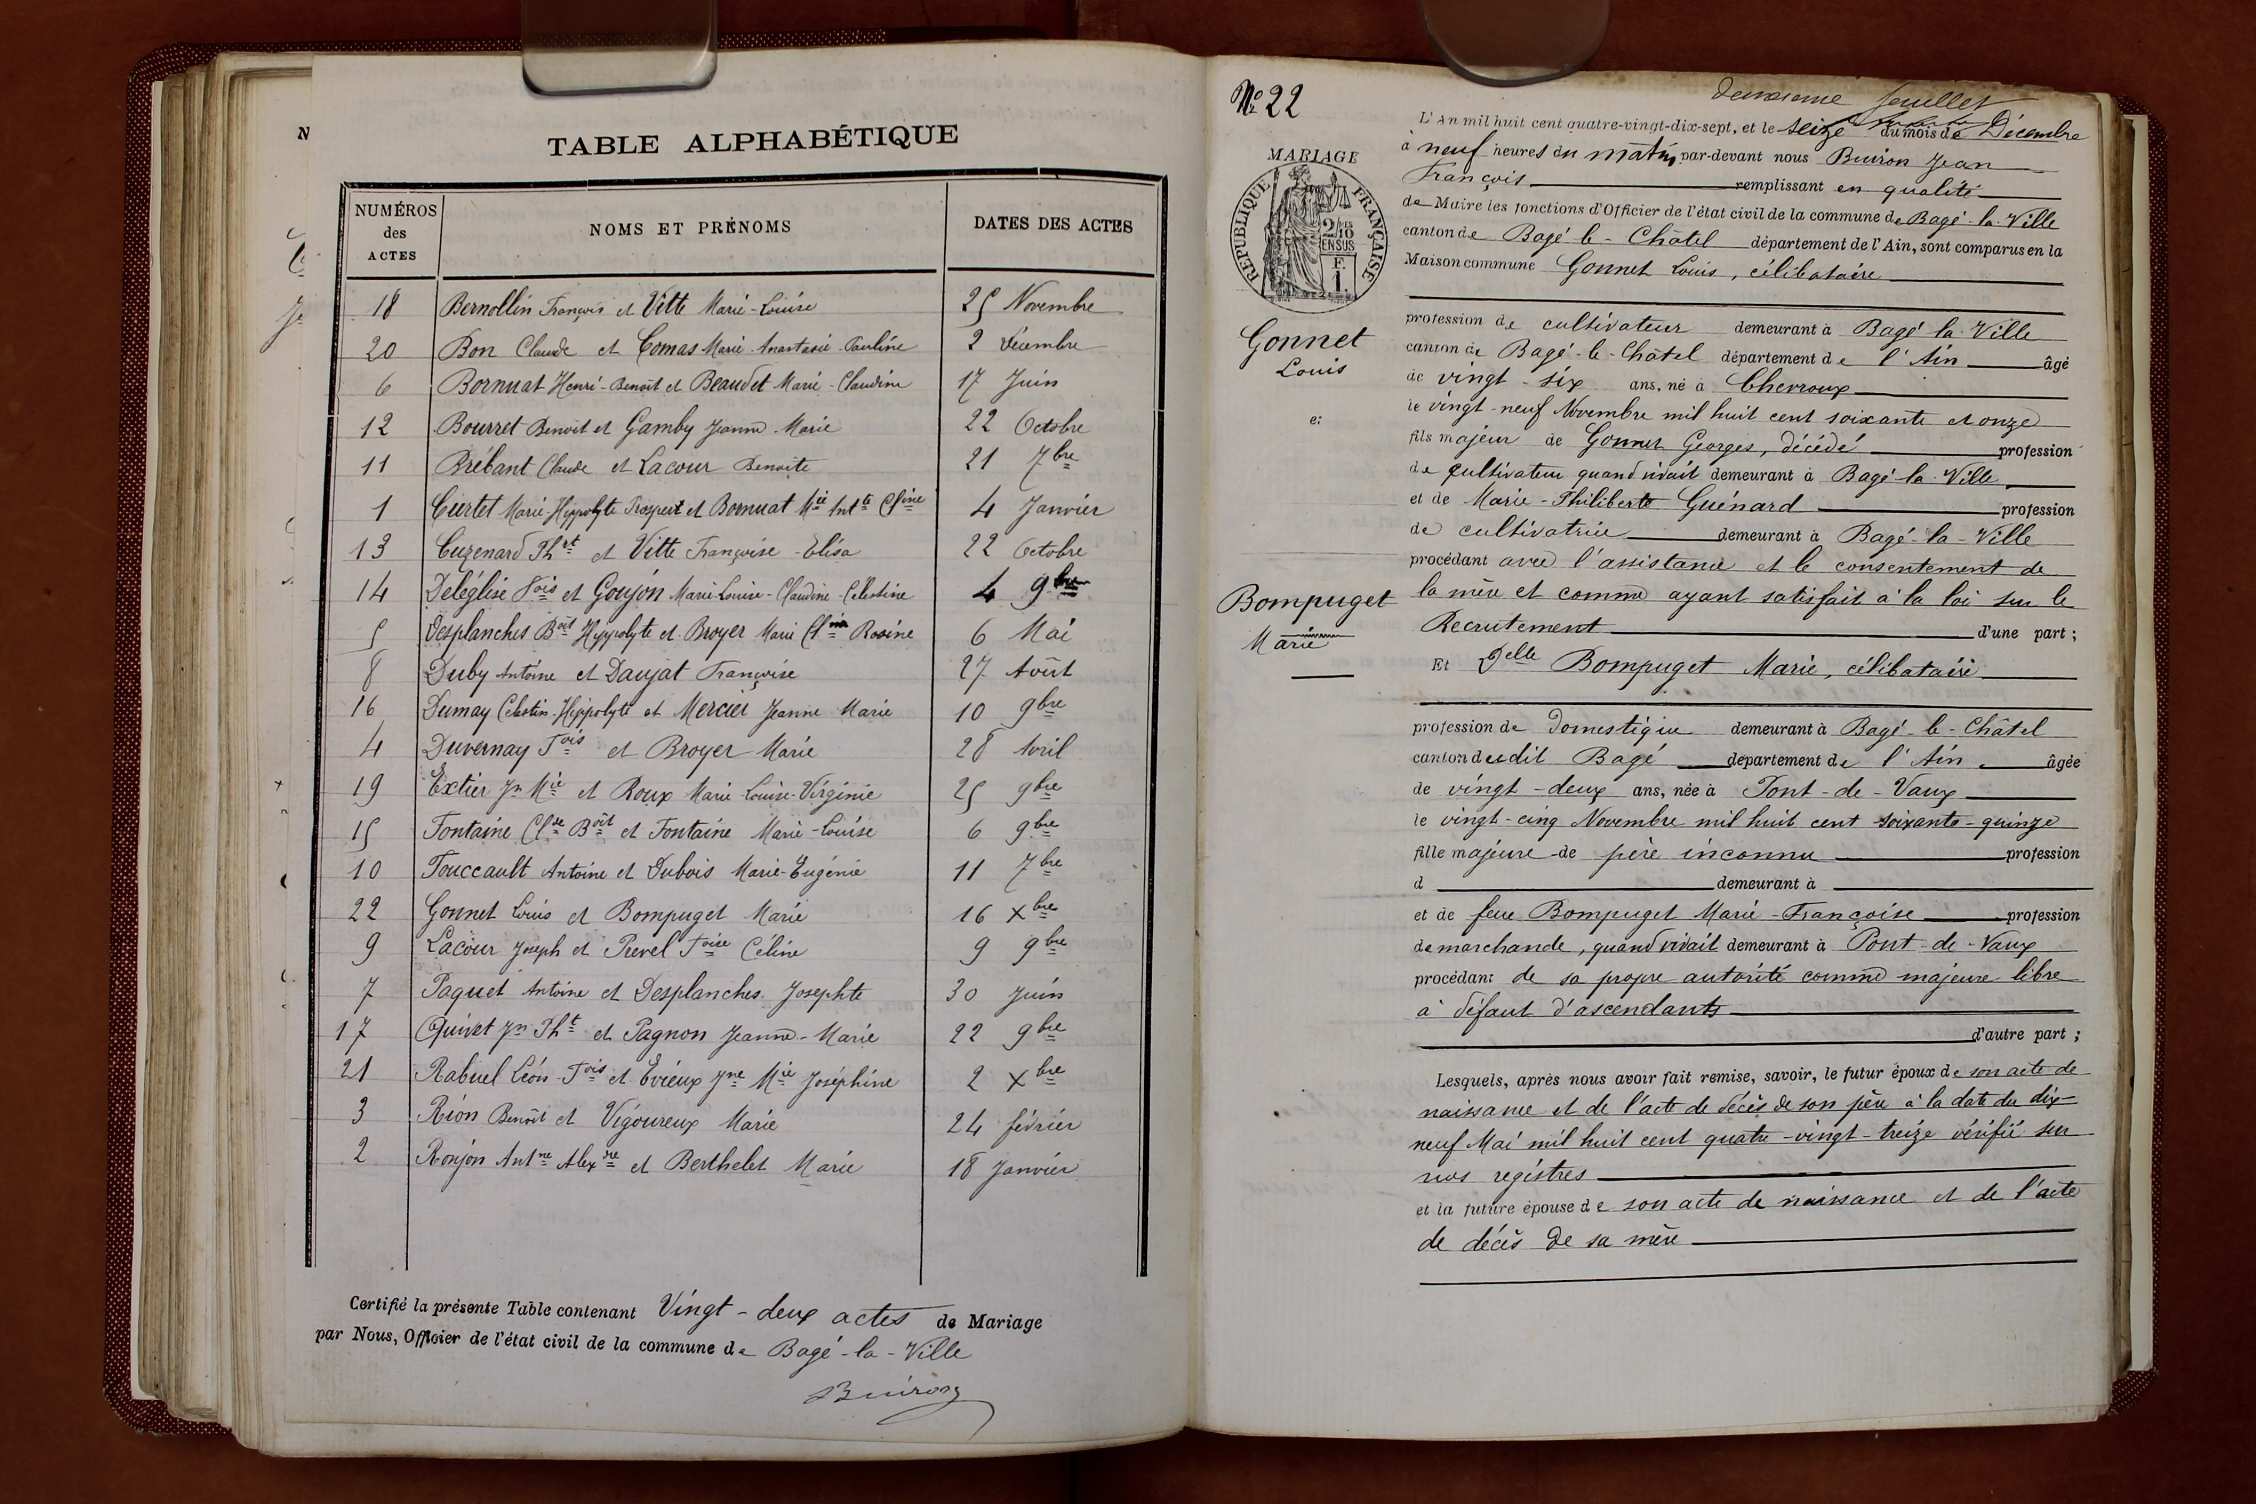 TABLE ALPHABÉTIQUE
NUMÉROS des ACTES NOMS ET PRÉNOMS DATES DES ACTES
18 Bernollin François et Vitte Marie-Louise 25 Novembre
20 Bon Claude et Comas Marie-Anastasie-Pauline 2 Décembre
6 Bornuat Henri-Benoît et Beaudet Marie-Claudine 17 Juin
12 Bourret Benoît et Gamby Jeanne-Marie 22 Octobre
11 Brébant Claude et Lacour Benoîte 21 7bre
1 Curtet Marie-Hippolyte Prosper et Bornuat Mie Antte Cline 4 Janvier
13 Cuzenard Phrt et Vitte Françoise-Elisa 22 Octobre
14 Deléglise Fois et Goujon Marie-Louise-Claudine-Célestine 4 9bre
5 Desplanches Boit Hyppolyte et Broyer Marie Cline Rosine 6 Mai
8 Duby Antoine et Daujat Françoise 27 Août
16 Dumay Célestin-Hippolyte et Mercier Jeanne Marie 10 9bre
4 Duvernay Fois et Broyer Marie 28 Avril
19 Extier Jn Mie et Roux Marie-Louise-Virginie 25 9bre
15 Fontaine Clde Boit et Fontaine Marie-Louise 6 9bre
10 Fouccault Antoine et Dubois Marie-Eugénie 11 7bre
22 Gonnet Louis et Bompuget Marie 16 Xbre
9 Lacour Joseph et Prevel Foise Céline 9 9bre
7 Paquet Antoine et Desplanches Josephte 30 Juin
17 Quivet Jn Pht et Pagnon Jeanne-Marie 22 9bre
21 Rabuel Léon-Fois et Evieux Jne Mie Joséphine 2 Xbre
3 Rion Benoît et Vigoureux Marie 24 février
2 Ronjon Antne Alexdre et Berthelet Marie 18 Janvier
Certifié la présente Table contenant Vingt-deux actes de Mariage
par Nous, Officier de l'état civil de la commune de Bagé-la-Ville
Buiron
No 22
deuxième feuillet
MARIAGE
RÉPUBLIQUE FRANÇAISE
2/10 EN SUS
F. 1.
Gonnet
Louis
et
Bompuget
Marie
L'An mil huit cent quatre-vingt-dix-sept, et le seize du mois de Décembre
à neuf heures du matin par-devant nous Buiron Jean
François remplissant en qualité
de Maire les fonctions d'Officier de l'état civil de la commune de Bagé-la-Ville
canton de Bagé-le-Châtel département de l'Ain, sont comparus en la
Maison commune Gonnet Louis, célibataire
profession de cultivateur demeurant à Bagé-la-Ville
canton de Bagé-le-Châtel département de l'Ain âgé
de vingt-six ans, né à Chevroux
le vingt-neuf Novembre mil huit cent soixante et onze
fils majeur de Gonnet Georges, décédé profession
de cultivateur quand vivait demeurant à Bagé-la-Ville
et de Marie-Philiberte Guénard profession
de cultivatrice demeurant à Bagé-la-Ville
procédant avec l'assistance et le consentement de
la mère et comme ayant satisfait à la loi sur le
Recrutement d'une part ;
Et Delle Bompuget Marie, célibataire
profession de domestique demeurant à Bagé-le-Châtel
canton dudit Bagé département de l'Ain âgée
de vingt-deux ans, née à Pont-de-Vaux
le vingt-cinq Novembre mil huit cent soixante-quinze
fille majeure de père inconnu profession
d demeurant à
et de feue Bompuget Marie-Françoise profession
de marchande, quand vivait demeurant à Pont-de-Vaux
procédant de sa propre autorité comme majeure libre
à défaut d'ascendants
d'autre part ;
Lesquels, après nous avoir fait remise, savoir, le futur époux de son acte de
naissance et de l'acte de décès de son père à la date du dix-
neuf Mai mil huit cent quatre-vingt-treize vérifié sur
nos registres
et la future épouse de son acte de naissance et de l'acte
de décès de sa mère